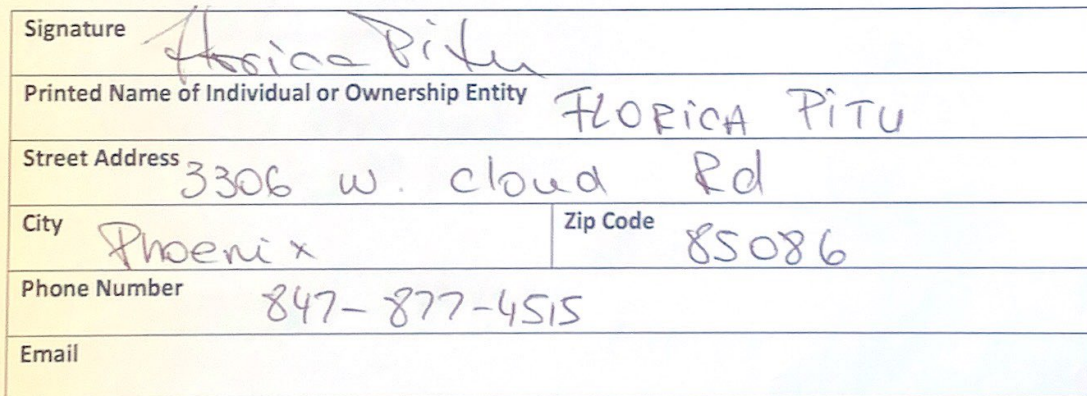 Signature Florica Pitu
Printed Name of Individual or Ownership Entity FLORICA PITU
Street Address 3306 W. Cloud Rd
City Phoenix Zip Code 85086
Phone Number 847-877-4515
Email